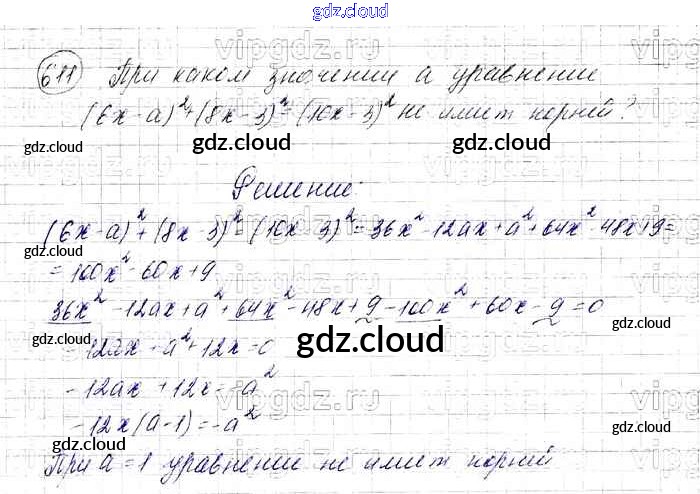 gdz.cloud
611 При каком значении а уравнение
(6x-a)²+(8x-3)²=(10x-3)² не имеет корней?
Решение:
(6x-a)²+(8x-3)² (10x-3)²=36x²-12ax+a²+64x²-48x+9=
=100x²-60x+9
36x²-12ax+a²+64x²-48x+9-100x²+60x-9=0
-12ax+a²+12x=0
-12ax+12x=-a²
-12x(a-1)=-a²
При a=1 уравнение не имеет корней
vipgdz.ru
gdz.cloud
gdz.cloud
gdz.cloud
gdz.cloud
gdz.cloud
gdz.cloud
gdz.cloud
gdz.cloud
gdz.cloud
gdz.cloud
gdz.cloud